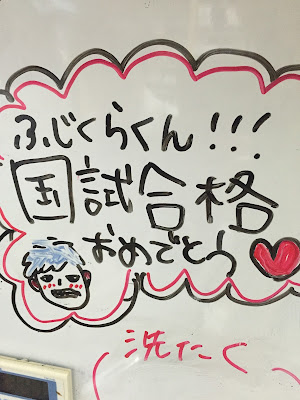 ふじくらくん!!!
国試合格
おめでとう
洗たく